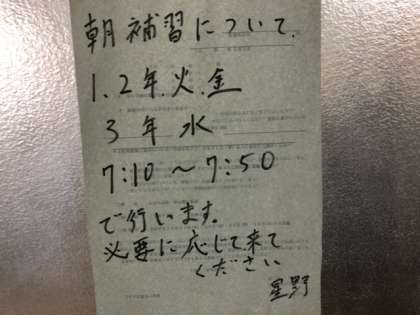 朝補習について.
1.2年.火.金
3年 水
7:10〜7:50
で行います。
必要に応じて来て
ください
星野